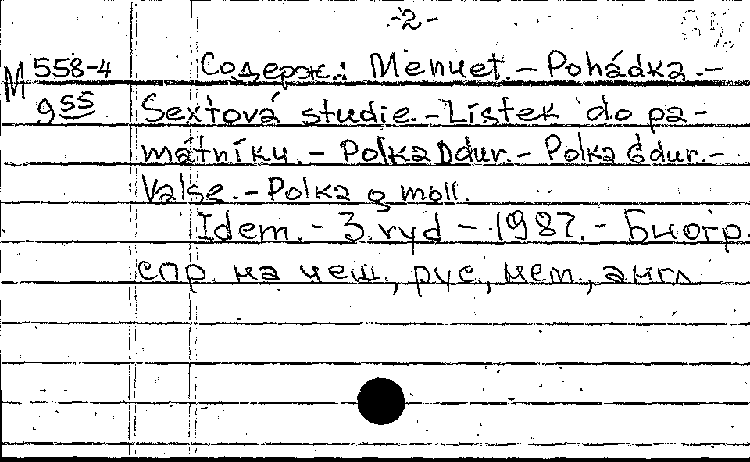 -2-
М 558-4 Содерж.: Menuet. - Pohádka. -
955 Sextová studie. - Lístek do pa-
mátníku. - Polka Ddur. - Polka Gdur. -
Valse. - Polka g moll.
Idem. - 3. vyd - 1987. - Биогр.
спр. на чеш., рус., нем., англ